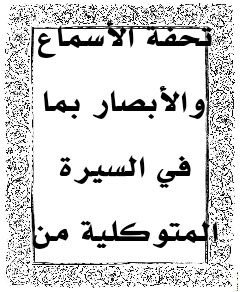 تحفة الأسماع
والأبصار بما
في السيرة
المتوكلية من